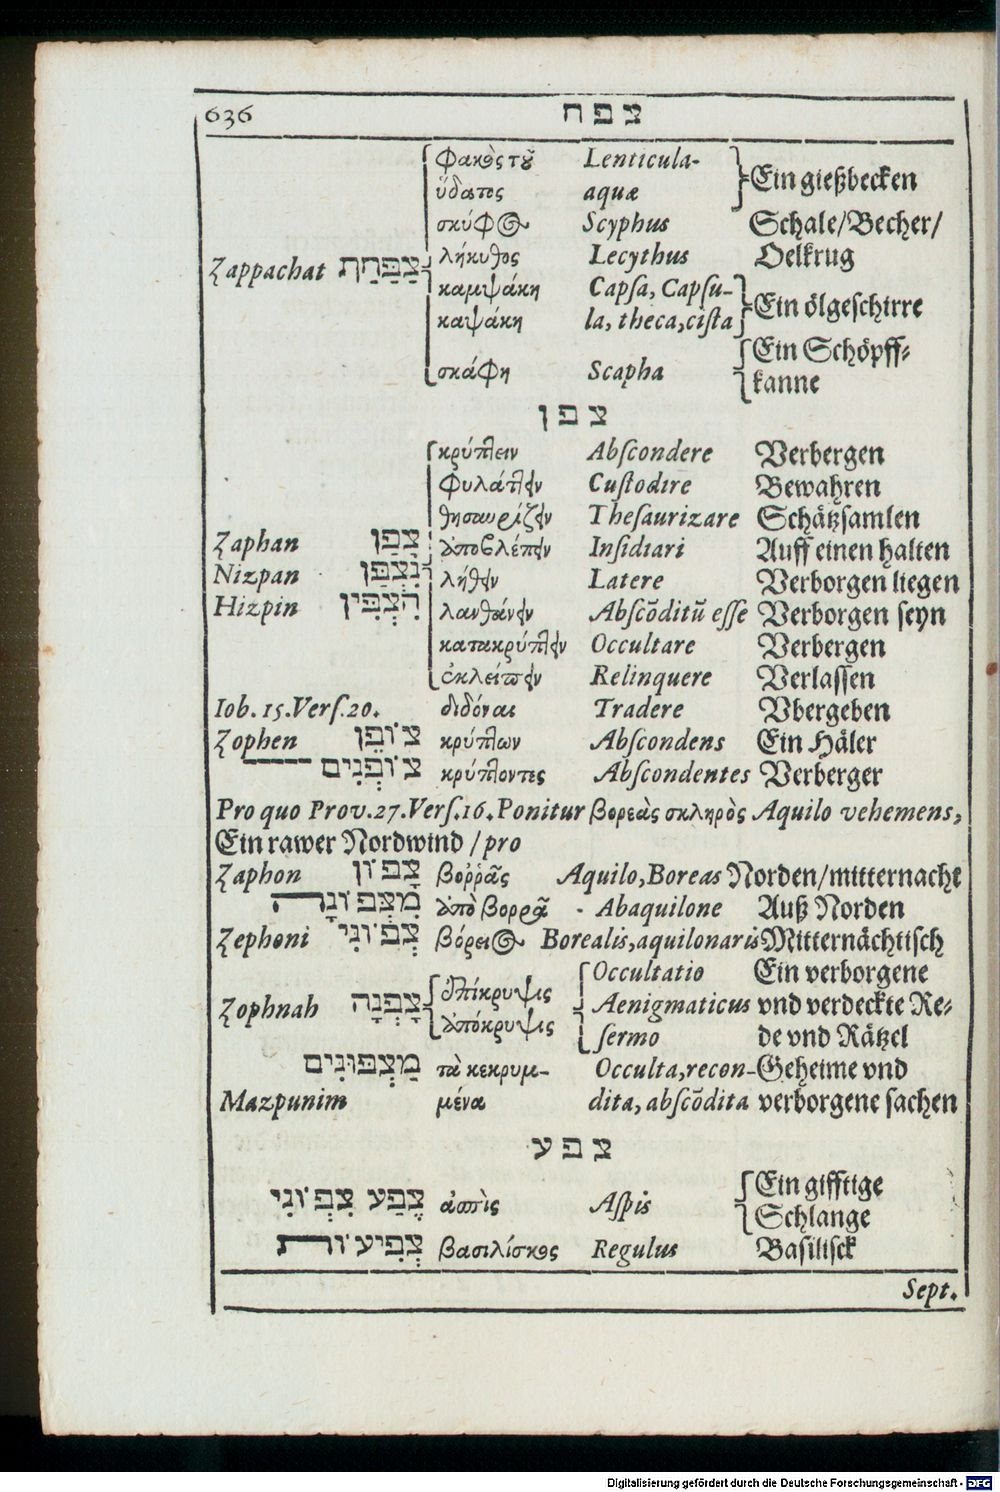 636 צפח
φακὸς τοῦ Lenticula- Ein gießbecken
ὕδατος aquæ
σκύφος Scyphus Schale/Becher/
λήκυθος Lecythus Oelkrug
Zappachat צַפַּחַת
καμψάκη Capſa, Capſu- Ein ölgeſchirre
καψάκη la, theca, ciſta
σκάφη Scapha Ein Schöpff⸗
kanne
צפן
κρύπτειν Abſcondere Verbergen
φυλάττειν Cuſtodire Bewahren
θησαυρίζειν Theſaurizare Schätzſamlen
Zaphan צָפַן ἀποβλέπειν Inſidiari Auff einen halten
Nizpan נִצְפַּן λήθειν Latere Verborgen liegen
Hizpin הִצְפִּין λανθάνειν Abſcōditū eſſe Verborgen ſeyn
κατακρύπτειν Occultare Verbergen
ἐκλείπειν Relinquere Verlaſſen
Iob. 15. Verſ. 20. διδόναι Tradere Vbergeben
Zophen צוֹפֵן κρύπτων Abſcondens Ein Häler
צוֹפְנִים κρύπτοντες Abſcondentes Verberger
Pro quo Prov. 27. Verſ. 16. Ponitur βορεὰς σκληρὸς Aquilo vehemens,
Ein rawer Nordwind / pro
Zaphon צָפוֹן βοῤῥᾶς Aquilo, Boreas Norden/mitternacht
מִצְפוֹנָה ἀπὸ βορρᾶ Abaquilone Auß Norden
Zephoni צְפוֹנִי βόρειος Borealis, aquilonaris Mitternächtiſch
ἐπίκρυψις Occultatio Ein verborgene
Zophnah צָפְנָה Aenigmaticus vnd verdeckte Re⸗
ἀπόκρυψις ſermo de vnd Rätzel
מַצְפּוּנִים τὰ κεκρυμ- Occulta, recon- Geheime vnd
Mazpunim μένα dita, abſcōdita verborgene ſachen
צפע
צֶפַע צִפְוֹנִי ἀσπὶς Aſpis Ein gifftige
Schlange
צְפִיעוֹת βασιλίσκος Regulus Baſiliſck
Sept.
Digitalisierung gefördert durch die Deutsche Forschungsgemeinschaft - DFG